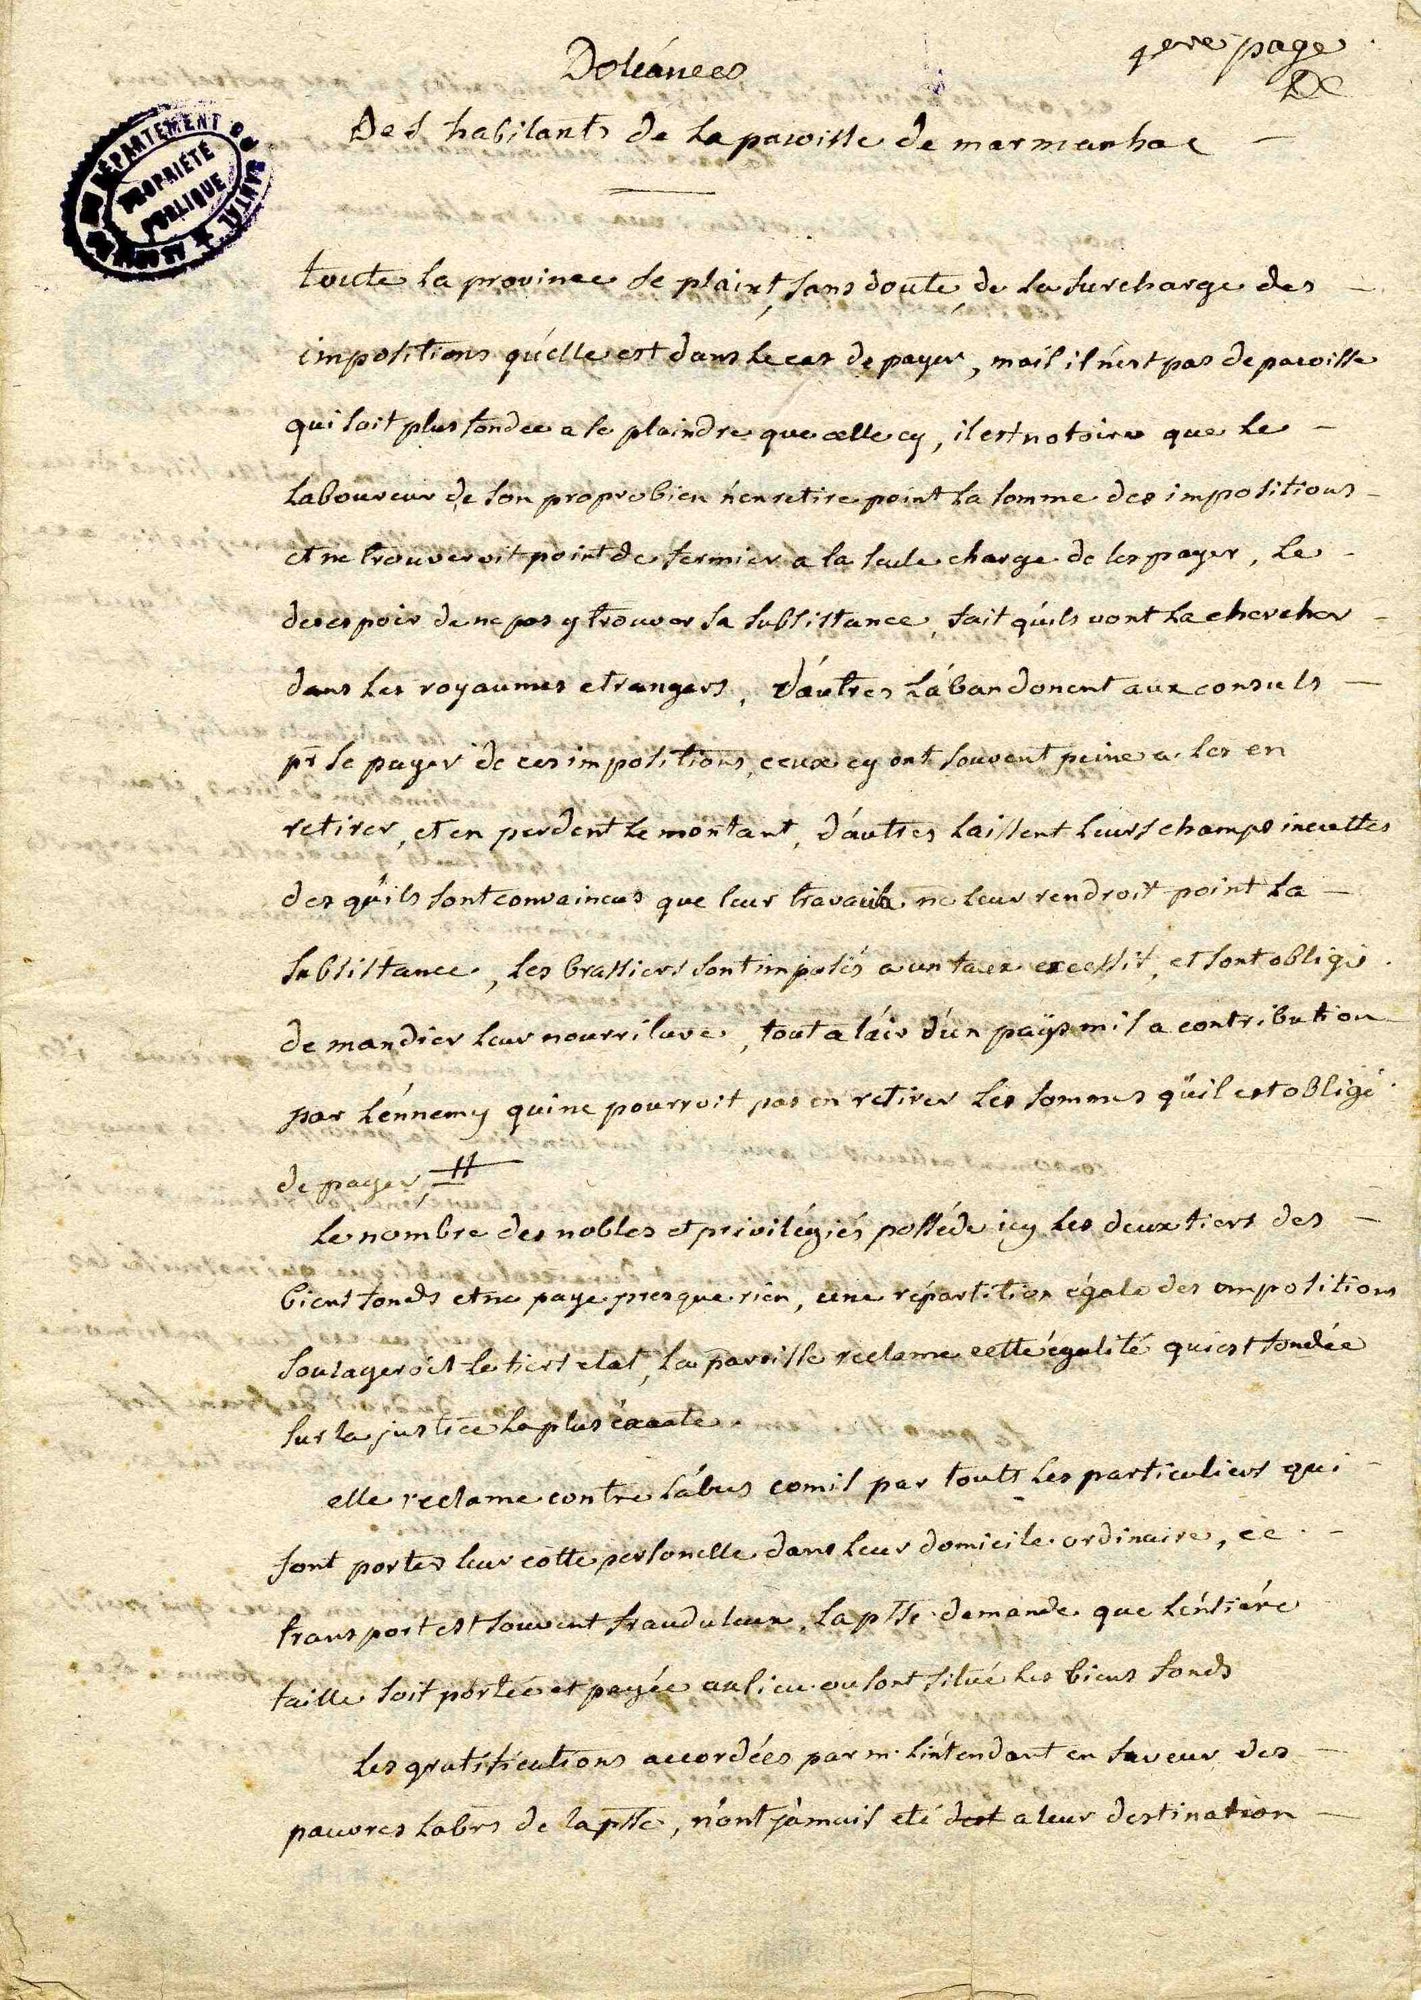 1ere page
De
Doléances
Des habitants de la paroisse de marmanhac
DÉPARTEMENT DU CANTAL
ARCHIVES
PROPRIÉTÉ
PUBLIQUE
toute la province se plaint, sans doute, de la surcharge des
impositions qu'elle est dans le cas de payer, mais il n'est pas de paroisse
qui soit plus fondee a se plaindre que celle cy, il est notoire que le
laboureur de son propre bien n'en retire point la somme des impositions
et ne trouveroit point de fermier a la seule charge de les payer, le
desespoir de ne pas y trouver sa subsistance, fait qu'ils vont la chercher
dans les royaumes etrangers, d'autres l'abandonent aux consuls
pr se payer de ces impositions, ceux cy ont souvent peine a les en
retirer, et en perdent le montant, d'autres laissent leurs champs incultes
des qu'ils sont convaincus que leur travail ne leur rendroit point la
subsistance, les brassiers sont imposés a un taux excessif, et sont obligé
de mandier leur nourriture, tout a l'air d'un païs mis a contribution
par l'ennemy qui ne pourroit pas en retirer les sommes qu'il est obligé
de payer,
le nombre des nobles et privilégiés posséde icy les deux tiers des
biens fonds et ne paye presque rien, une répartition égale des impositions
soulageroit le tiers etat, la paroisse reclame cette égalité qui est fondée
sur la justice la plus éxacte.
elle reclame contre l'abus comis par touts les particuliers qui
font porter leur cotte personelle dans leur domicile ordinaire, ce
transport est souvent frauduleux, la psse demande que l'entiére
taille soit portée et payée au lieu ou sont situé les biens fonds
les gratifications accordées par m. l'intendant en faveur des
pauvres labrs de la psse, n'ont jamais eté a leur destination